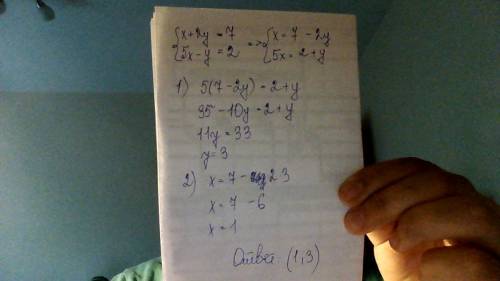 {x+2y=7 => {x=7-2y
{5x-y=2 {5x=2+y
1) 5(7-2y)=2+y
35-10y=2+y
11y=33
y=3
2) x=7-2·3
x=7-6
x=1
Ответ (1,3)